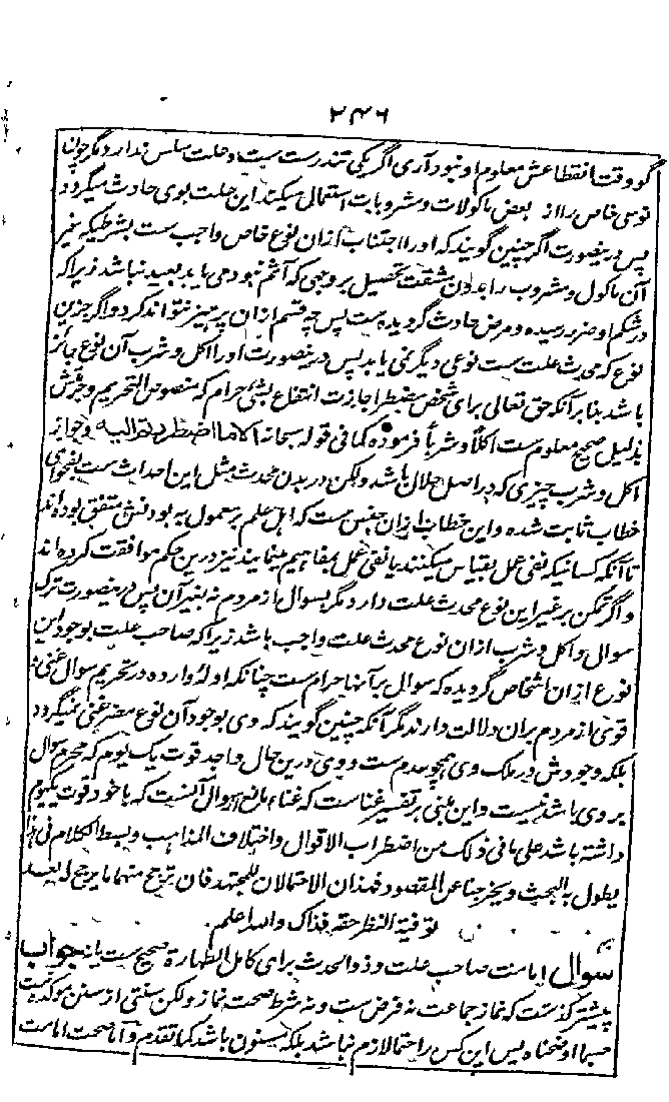 ۲۴۶
گو وقت انقطاعش معلوم او نبود آری اگر یکی تندرست ست و علت سلس ندارد مگر چون
نوعی خاص را از بعض ماکولات و مشروبات استعمال میکند این علت بوی حادث میگردد
پس درینصورت اگر چنین گویند که او را اجتناب ازان نوع خاص واجب ست بشرطیکه بغیر
آن ماکول و مشروب را بدون مشقت تحصیل بر وجهی که آثم نبود می یابد بعید نباشد زیراکه
در شکم او ضرر رسیده و مرض حادث گردیده ست پس چه قسم ازان پرهیز نتواند کرد و اگر جزین
نوع که محدث علت ست نوعی دیگر نمی یابد پس درینصورت او را اکل و شرب آن نوع جائز
باشد بنا بر آنکه حق تعالی برای شخص مضطر اجازت انتفاع بشئ حرام که منصوص التحریم و
بدلیل صحیح معلوم ست اکلاً و شرباً فرموده کما فی قوله سبحانه الا ما اضطررتم الیه و جواز
اکل و شرب چیزی که در اصل حلال باشد ولکن در بدن محدث مثل این احداث ست بفحوای
خطاب ثابت شده و این خطاب ازان جنس ست که اهل علم بر معمول به بودنش متفق بوده اند
تا آنکه کسانیکه نفی عمل بقیاس میکنند یا نفی عمل بمفاهیم مینمایند نیز درین حکم موافقت کرده اند
و اگر تمکن بر غیر این نوع محدث علت دارد مگر بسوال از مردم نه بغیر آن پس درینصورت ترک
سوال و اکل و شرب ازان نوع محدث علت واجب باشد زیراکه صاحب علت بوجود این
نوع ازان اشخاص گردیده که سوال بر آنها حرام ست چنانکه ادلهٔ وارده در تحریم سوال غنی و
قوی از مردم بران دلالت دارند مگر آنکه چنین گویند که وی بوجود آن نوع مضر غنی نمیگردد
بلکه وجودش در ملک وی همچو عدم ست و وی درین حال واجد قوت یک یوم که محرم سوال
بر وی باشد نیست و این مبنی بر تفسیر غناست که غناء مانع سوال آنست که با خود قوت یکیوم
داشته باشد علی ما فی ذلک من اضطراب الاقوال و اختلاف المذاهب و بسط الکلام فی هذا
یطول به البحث و یخرجنا عن المقصود فهذان الاحتمالان للمجتهد فان ترجح منهما ما یرجح له بعد
توفیة النظر حقه فذاک والله اعلم.
سوال امامت صاحب علت و ذوالحدث برای کامل الطهارة صحیح ست یا نه جواب
پیشتر گذشت که نماز جماعت نه فرض ست و نه شرط صحت نماز ولکن سنتی از سنن موکده ست
حسبما اوضحناه پس این کس را حتما لازم نباشد بلکه مسنون باشد کما تقدم و اما صحت امامت